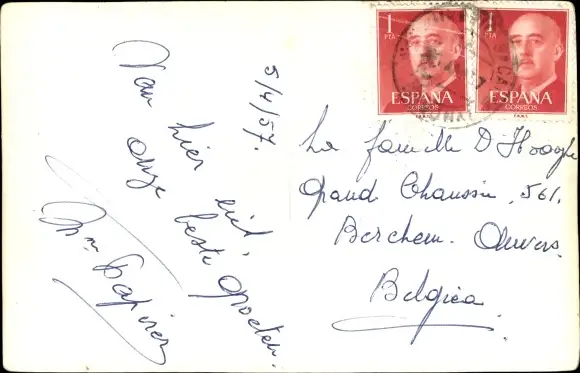 5/4/57.
Van hier uit
onze beste groeten.
1
PTA
ESPAÑA
CORREOS
F.N.M.T.
1
PTA
ESPAÑA
CORREOS
F.N.M.T.
La famille D'Hooghe
Grand Chaussée, 561.
Berchem. Anvers.
Belgica